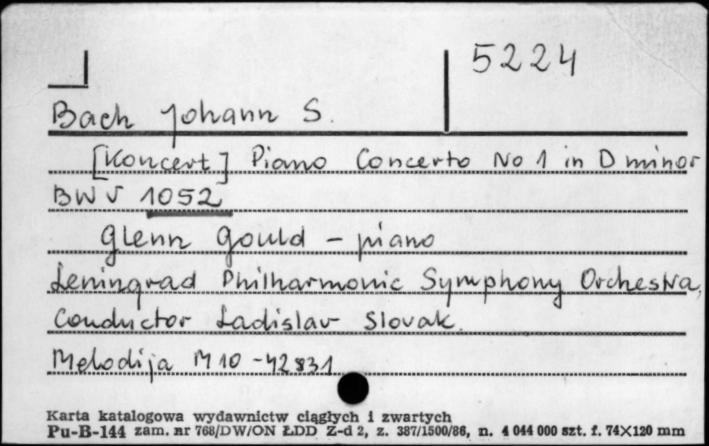 5224
Bach Johann S.
[Koncert] Piano Concerto No 1 in D minor
BWV 1052
Glenn Gould - piano
Leningrad Philharmonic Symphony Orchestra,
Conductor Ladislav Slovak.
Melodija M10-42831
Karta katalogowa wydawnictw ciągłych i zwartych
Pu-B-144 zam. nr 768/DW/ON ŁDD Z-d 2, z. 387/1500/86, n. 4 044 000 szt. f. 74×120 mm